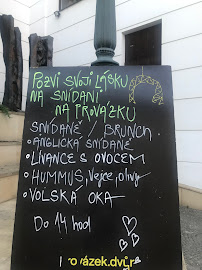 POZVI SVOJI LÁSKU
NA SNÍDANI
NA PROVÁZKU
SNÍDANĚ / BRUNCH
• ANGLICKÁ SNÍDANĚ
• LÍVANCE S OVOCEM
• HUMMUS, Vejce, olivy
• VOLSKÁ OKA
Do 14 hod
ázek.dvůr